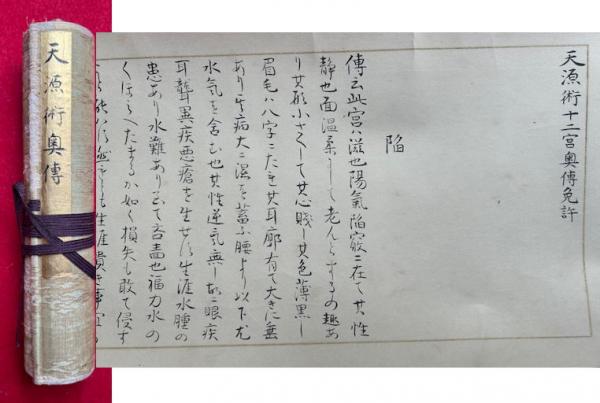 天源術十二宮奥傳免許
陥
傳云此宮ハ滋也陽氣陥竅ニ在て其性
静也面温柔ニして老人とするの趣あ
り其形小さくして其心賤し其色薄黒し
眉毛ハ八字ニたれ其耳廓有て大きに垂
あり生病大ニ湿を蓄ふ腰より以下尤
水気を含む也其性逆気無し故ニ眼疾
耳聾異疾悪瘡を生せす生涯水腫の
患あり水難あり而て吝嗇也福力水の
くほミへたまるか如く損失も敢て侵す
生涯貴き事
天源術奥傳